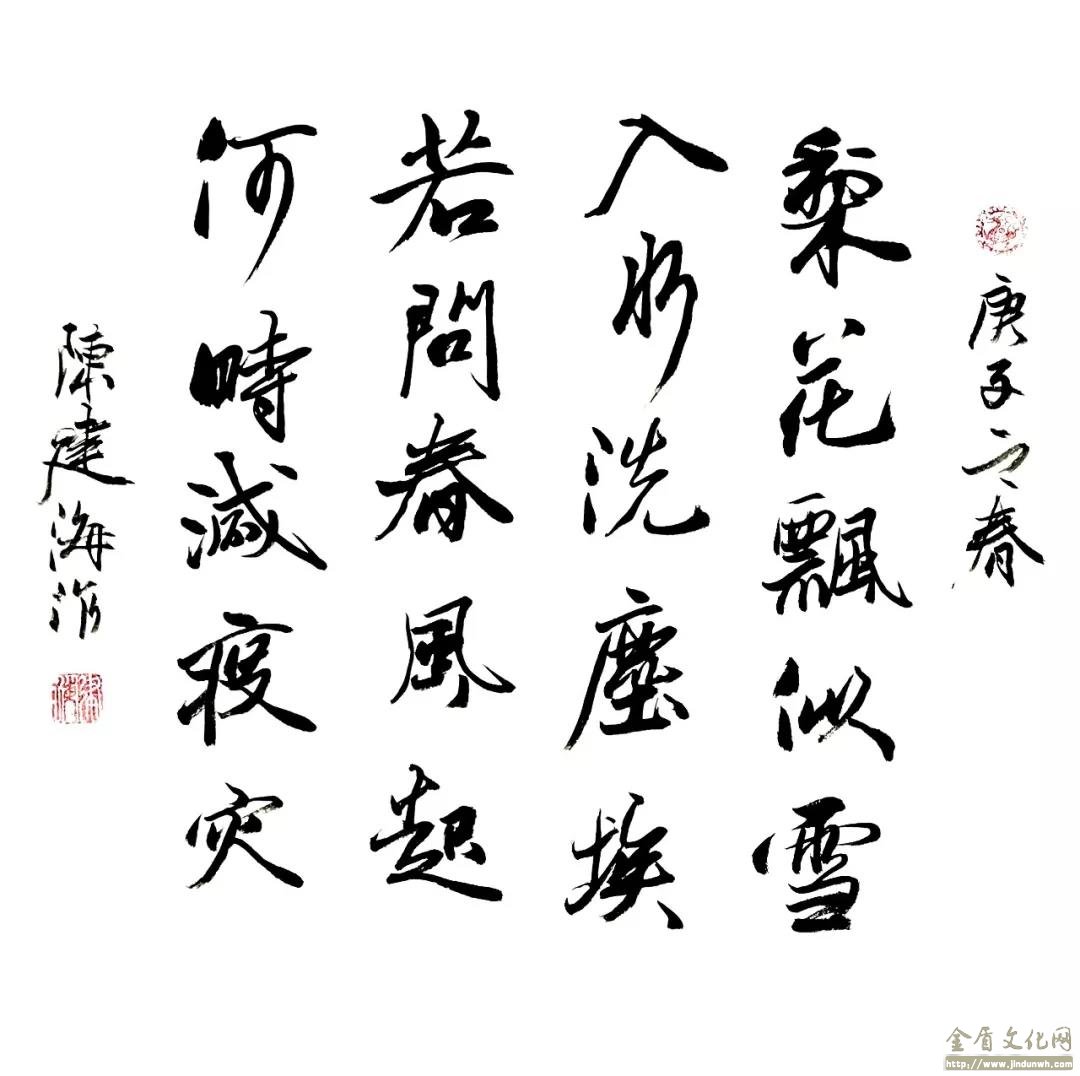 庚子之春
梨花飄似雪
入水洗塵埃
若問春風起
何時減疫灾
陳建海作
金盾文化网
http://www.jindunwh.com